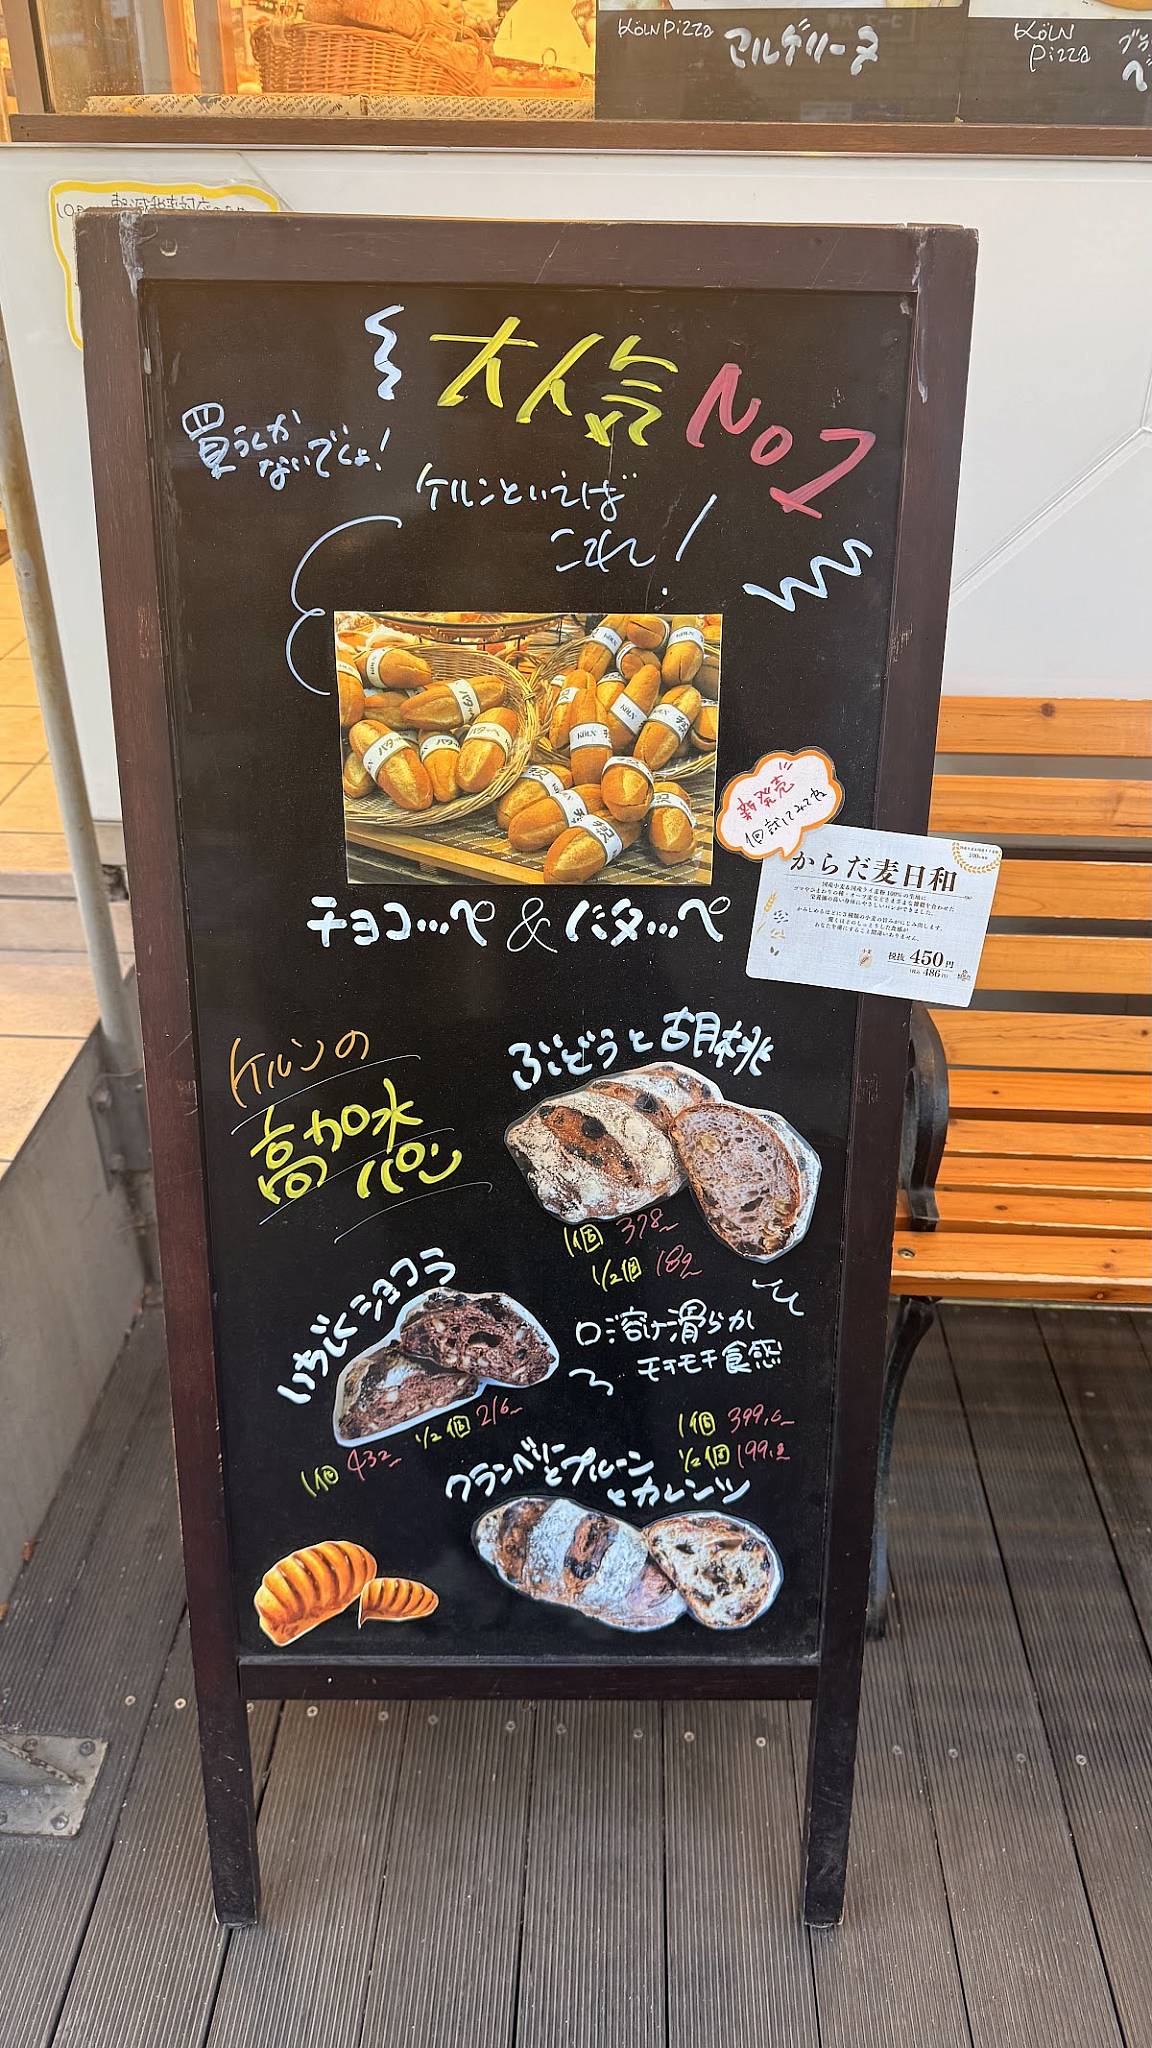 KÖLN pizza
マルゲリータ
KÖLN
pizza
大人気 No1
買うしか
ないでしょ!
ケルンといえば
これ!
チョコ…ペ & バタ…ペ
新発売
からだ麦日和
税抜 450円
(税込 486円)
ケルンの
高加水
パン
ぶどうと胡桃
1個 378
1/2個 189
いちじくショコラ
1個 432
1/2個 216
口溶け滑らか
モチモチ食感
1個 399.6
1/2個 199.8
クランベリー
とプルーン
とカレンツ